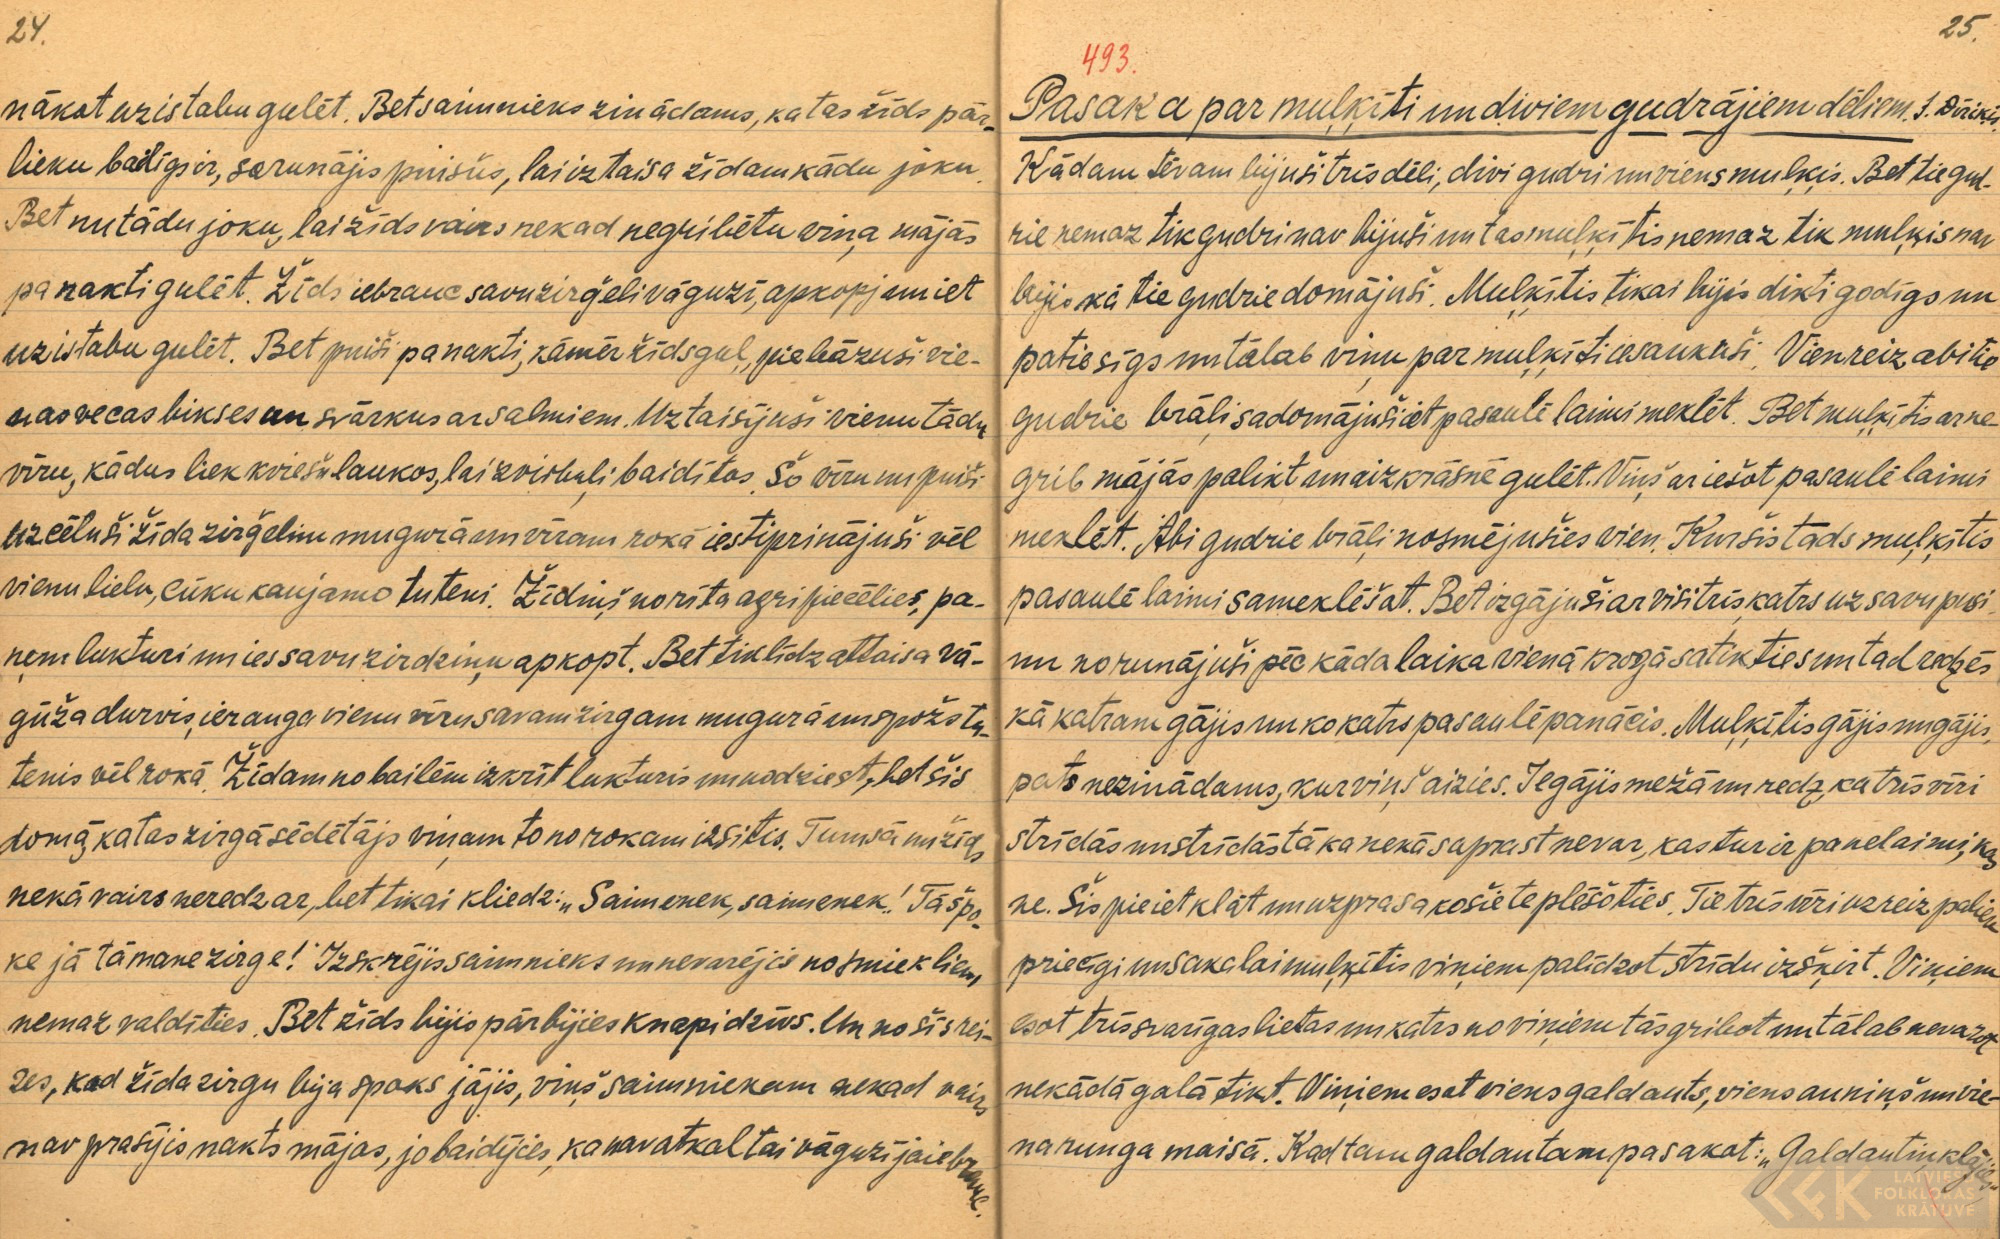 24.
nākot uz istabu gulēt. Bet saimnieks zinādams, ka tas žīds pār-
lieku bailīgs ir, sarunājis puišus, lai iztaisa žīdam kādu joku.
Bet nu tādu joku, lai žīds vairs nekad negribētu viņa mājās
pa nakti gulēt. Žīds iebrauc savu zirģeli vāguzī, apkopj un iet
uz istabu gulēt. Bet puiši pa nakti, kāmēr žīds guļ, piebāzuši vie-
nas vecas bikses un svārkus ar salmiem. Uztaisījuši vienu tādu
vīru, kādus liek kviešu laukos, lai zvirbuļi baidītos. Šo vīru nu puiši
uzcēluši žīda zirģelim mugurā un vīram rokā iestiprinājuši vēl
vienu lielu, cūku kaujamo tuteni. Žīdiņš no rīta agri piecēlies, pa-
ņem lukturi un ies savu zirdziņu apkopt. Bet tiklīdz attaisa vā-
gūža durvis, ierauga vienu vīru savam zirgam mugurā un spožs tu-
tenis vēl rokā. Žīdam no bailēm izkrīt lukturis un nodziest, bet šis
domā, ka tas zirgā sēdētājs viņam to no rokam izsitis. Tumsā nu žīds
nekā vairs neredz ar, bet tikai kliedz: „Saimenek, saimenek! Tā špo-
ke jā tā mane zirge!" Izskrējis saimnieks un nevarējis no smiekliem
nemaz valdīties. Bet žīds bijis pārbijies knapi dzīvs. Un no šīs rei-
zes, kad žīda zirgu bija spoks jājis, viņš saimniekam nekad vairs
nav prasījis nakts mājas, jo baidījies, ka nav atkal tai vāguzī jāiebrauc.
25.
493.
Pasaka par muļķīti un diviem gudrājiem dēliem. J. Dīriķis.
Kādam tēvam bijuši trīs dēli, divi gudri un viens muļķis. Bet tie gud-
rie nemaz tik gudri nav bijuši un tas muļķītis nemaz tik muļķis nav
bijis kā tie gudrie domājuši. Muļķītis tikai bijis dikti godīgs un
patiesīgs un tālab viņu par muļķīti iesaukuši. Vienreiz abi tie
gudrie brāļi sadomājuši iet pasaulē laimi meklēt. Bet muļķītis ar ne-
grib mājās palikt un aizkrāsnē gulēt. Viņš ar iešot pasaulē laimi
meklēt. Abi gudrie brāļi nosmējušies vien. Kur šis tāds muļķītis
pasaulē laimi sameklēšot. Bet izgājuši ar visi trīs, katrs uz savu pusi
un norunājuši pēc kāda laika vienā krogā satikties un tad redzēs
kā katram gājis un ko katrs pasaulē panācis. Muļķītis gājis un gājis,
pats nezinādams, kur viņš aizies. Iegājis mežā un redz, ka trīs vīri
strīdās un strīdās tā ka nekā saprast nevar, kas tur ir pa nelaimi, kas
ne. Šis pieiet klāt un uzprasa ko šie te plēšoties. Tie trīs vīri uzreiz paliek
priecīgi un saka lai muļķītis viņiem palīdzot strīdu izšķirt. Viņiem
esot trīs svarīgas lietas un katrs no viņiem tās gribot un tālab nevarot
nekādā galā tikt. Viņiem esot viens galdauts, viens auniņš un vie-
na runga maisā. Kad tam galdautam pasakot: „Galdautiņ klājies"
LATVIEŠU
FOLKLORAS
KRĀTUVE